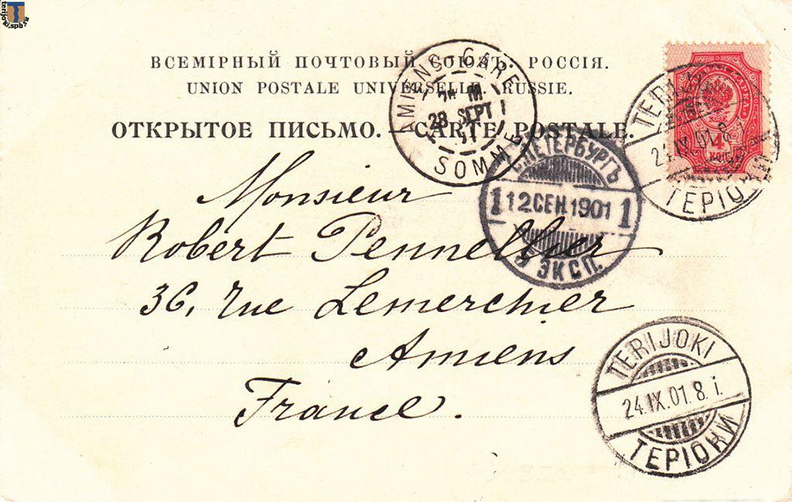 terijoki.spb.ru
ВСЕМІРНЫЙ ПОЧТОВЫЙ СОЮЗЪ. РОССІЯ.
UNION POSTALE UNIVERSELLE. RUSSIE.
ОТКРЫТОЕ ПИСЬМО.—CARTE POSTALE.
AMIENS-GARE
28 SEPT
SOMME
TERIJOKI
24.IX.01.8.
ТЕРІОКИ
4
С.ПЕТЕРБУРГЪ
1 12 СЕН 1901 1
ЭКСП.
Monsieur
Robert Pennellier
36, rue Lemerchier
Amiens
France.
TERIJOKI
24.IX.01.8.i.
ТЕРІОКИ